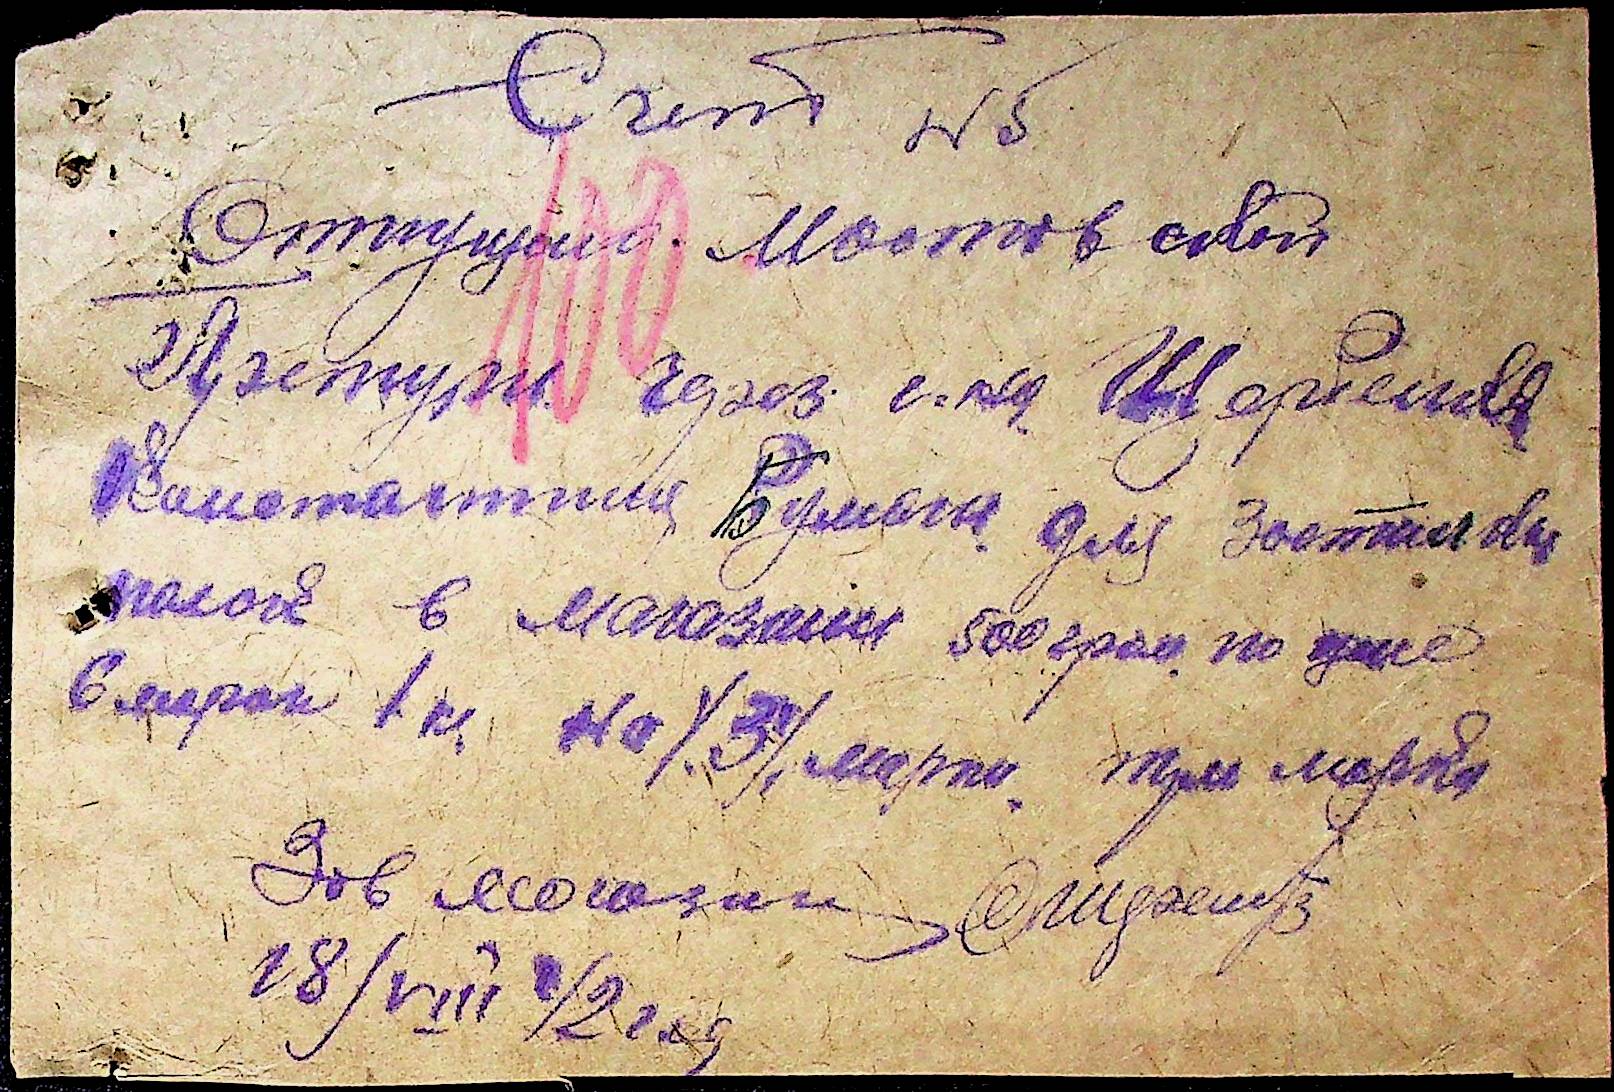 Счет №5
100
Отпущено Мостовской
через г-на Щербина
Константина Бумаги для застилки
полок в магазин 500 грам по цене
6 марок 1 кг на /.3./. марки три марки
Зав магазин
18/VIII 42 года